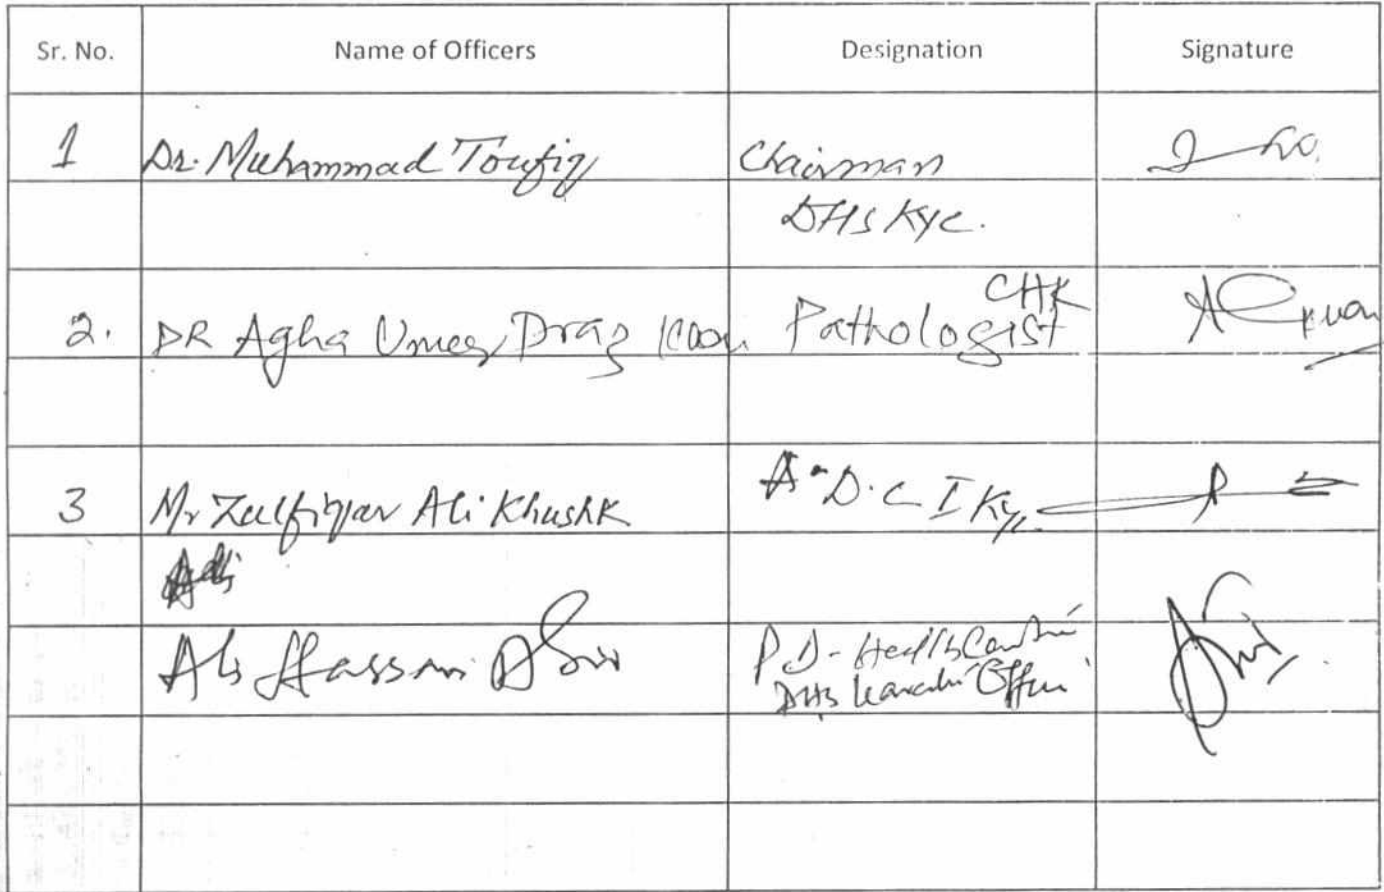 Sr. No. Name of Officers Designation Signature
1 Dr. Muhammad Toufiq Chairman
DHS Kyc.
CHK
2. DR Agha Umer Draz Pathologist
3 Mr Zulfiqar Ali Khushk A.D.C I Ky
Ali Hassan P.D- Health
DHS Karachi Office